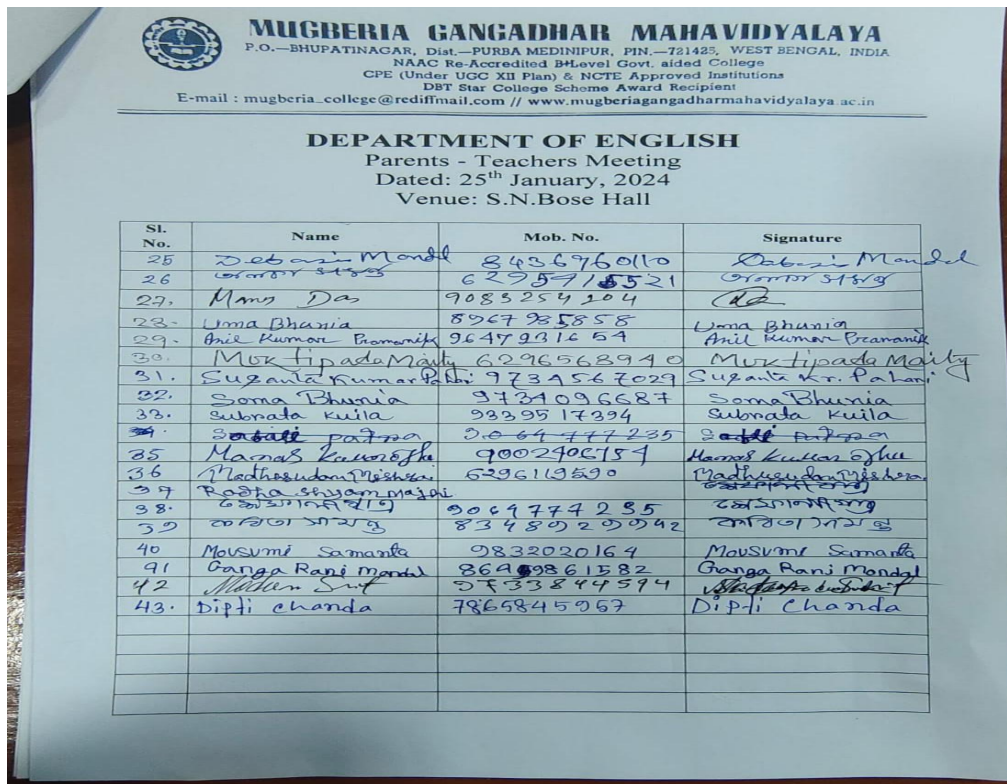 MUGBERIA GANGADHAR MAHAVIDYALAYA
P.O.—BHUPATINAGAR, Dist.—PURBA MEDINIPUR, PIN.—721425, WEST BENGAL, INDIA
NAAC Re-Accredited B+Level Govt. aided College
CPE (Under UGC XII Plan) & NCTE Approved Institutions
DBT Star College Scheme Award Recipient
E-mail : mugberia_college@rediffmail.com // www.mugberiagangadharmahavidyalaya.ac.in
DEPARTMENT OF ENGLISH
Parents - Teachers Meeting
Dated: 25th January, 2024
Venue: S.N.Bose Hall
Sl. No. Name Mob. No. Signature
25 Debasis Mondal 8436960110 Debasis Mondal
26
27. Das 9083254204
28. Uma Bhunia 8967985858 Uma Bhunia
29. Anil Kumar Pramanik 9647931654 Anil Kumar Pramanik
30. Muktipada Maity 6296568940 Muktipada Maity
31. Susanta Kumar 9734567029 Susanta Kr. Pahari
32. Soma Bhunia 9734096687 Soma Bhunia
33. Subrata Kuila 9339517394 Subrata Kuila
9064777235
35 Manas 9002406154 Manas Kumar
36 Madhusudan 6296119590 Madhusudan
37 Radha Shyam Majhi
38. 9064777235
39 কবিতা সামন্ত কবিতা সামন্ত
40 Mousumi Samanta 9832020164 Mousumi Samanta
41 Ganga Rani Mondal Ganga Rani Mondal
42 9733844594
43. Dipti Chanda 7865845967 Dipti Chanda